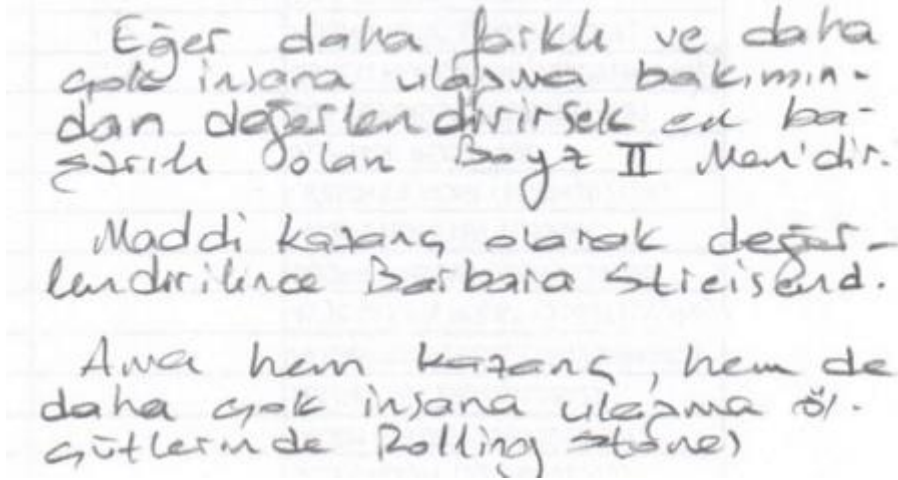 Eğer daha farklı ve daha
çok insana ulaşma bakımın-
dan değerlendirirsek en ba-
şarılı olan Boyz II Men'dir.
Maddi kazanç olarak değer-
lendirilince Barbara Streisend.
Ama hem kazanç, hem de
daha çok insana ulaşma öl-
çütlerinde Rolling Stones